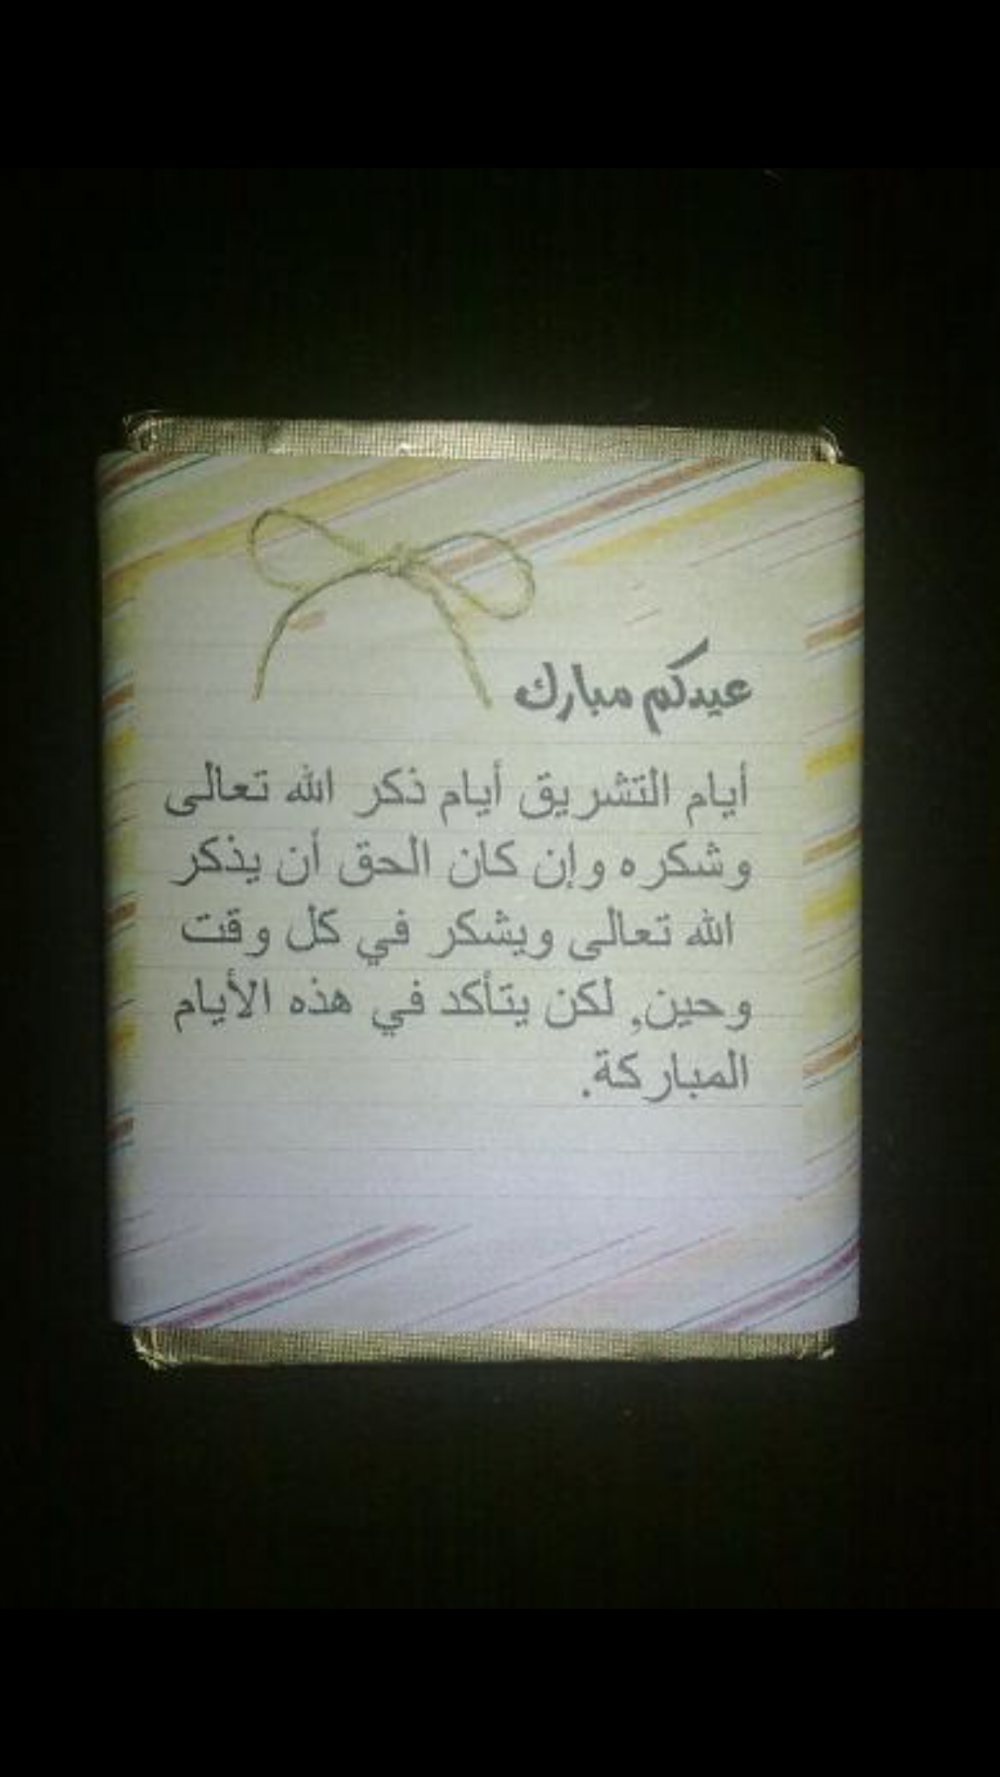 عيدكم مبارك
أيام التشريق أيام ذكر الله تعالى
وشكره وإن كان الحق أن يذكر
الله تعالى ويشكر في كل وقت
وحين, لكن يتأكد في هذه الأيام
المباركة.